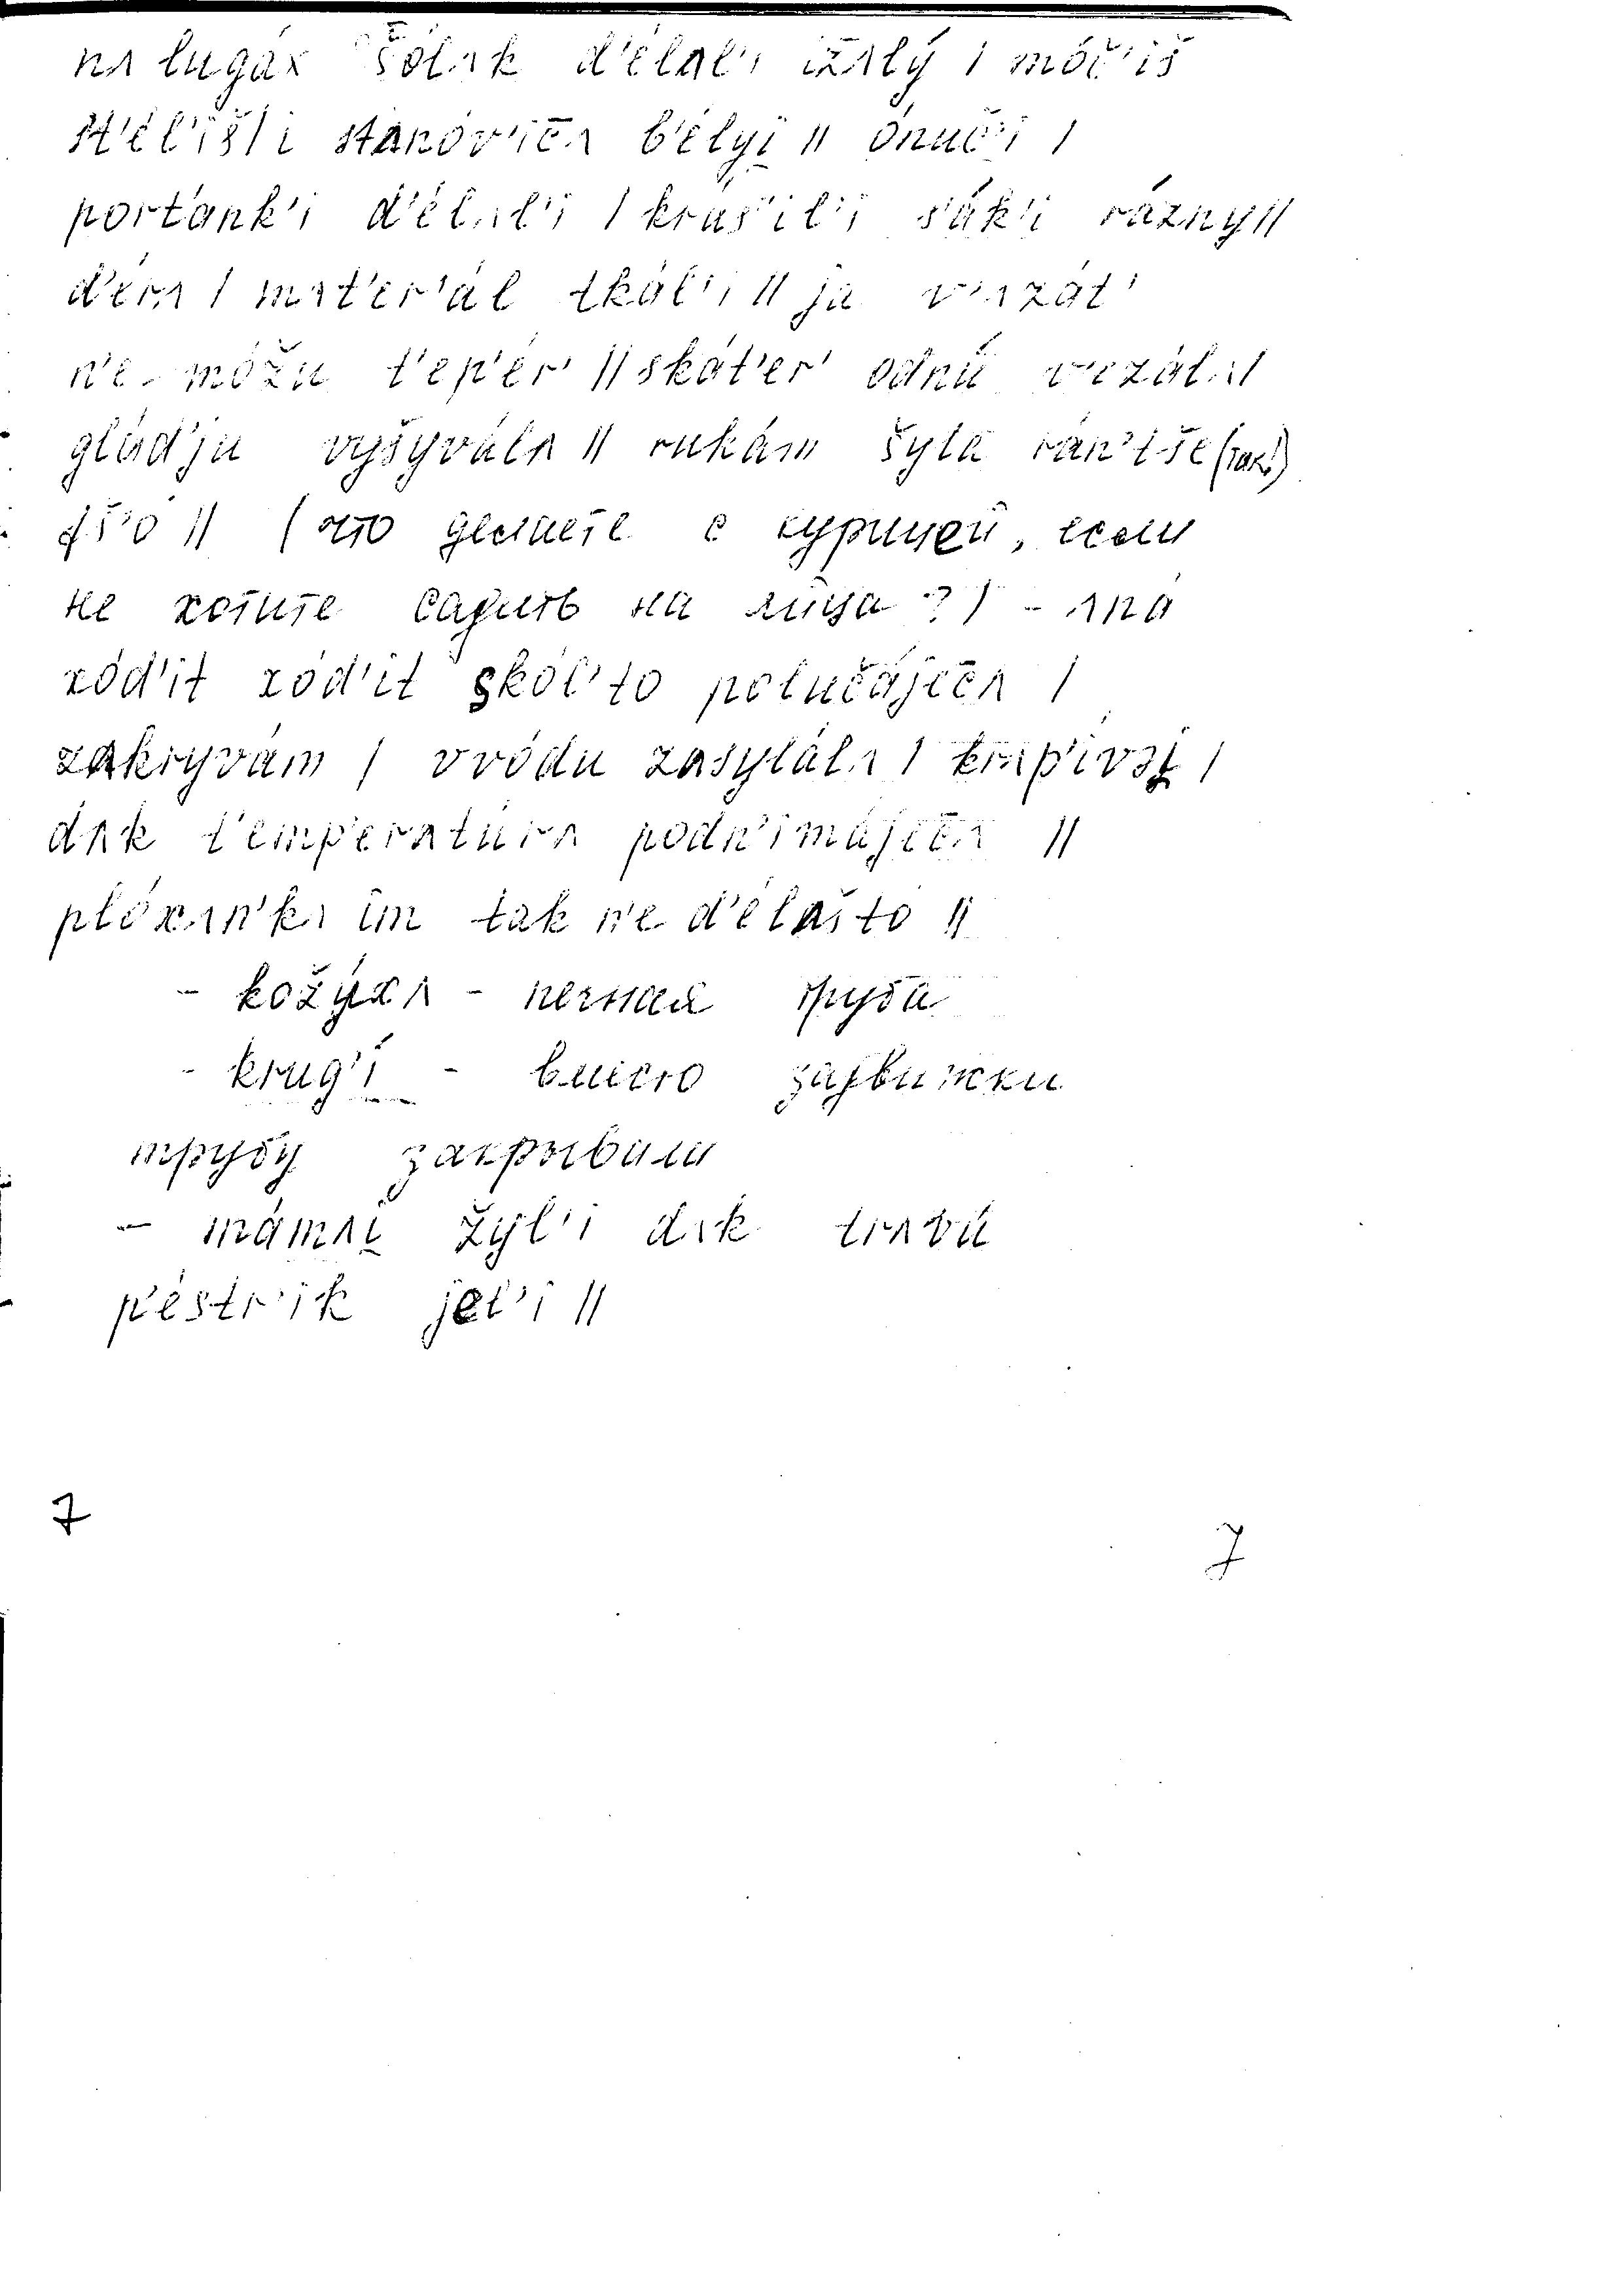 nʌ lugáx šólʌk d'élʌl'i iz̄ʌlý / móč'iš
st'él'iš / i stʌnóv'ic̄ʌ b'élyi̯ // ónuč'i /
port'ánk'i d'élʌl'i / krás'il'i s'ák'i rázny //
d'érʌ / mʌt'er'ál tkál'i // ja v'ʌzát'
n'e móžu t'ep'ér' // skát'er' odnú v'ezálʌ /
glád'ju vyšyválʌ // rukám šylá rán'iše (так!)
fs'o // (что делаете с курицей, если
не хотите садить на яйца?) - ʌná
xód'it xód'it skól'to polučájec̄ʌ /
zʌkryvám / v vódu zasylálʌ / krʌp'ívəi̯ /
dʌk t'emp'erʌtúrʌ podn'imájec̄ʌ //
plóxʌn'kʌ im tak n'e d'élašto //
- kožýxʌ - печная труба
- krug'í - вместо задвижки
трубу закрывали
- mámʌi̯ žýl'i dʌk trʌvú
p'éstr'ik jel'i //
7
7